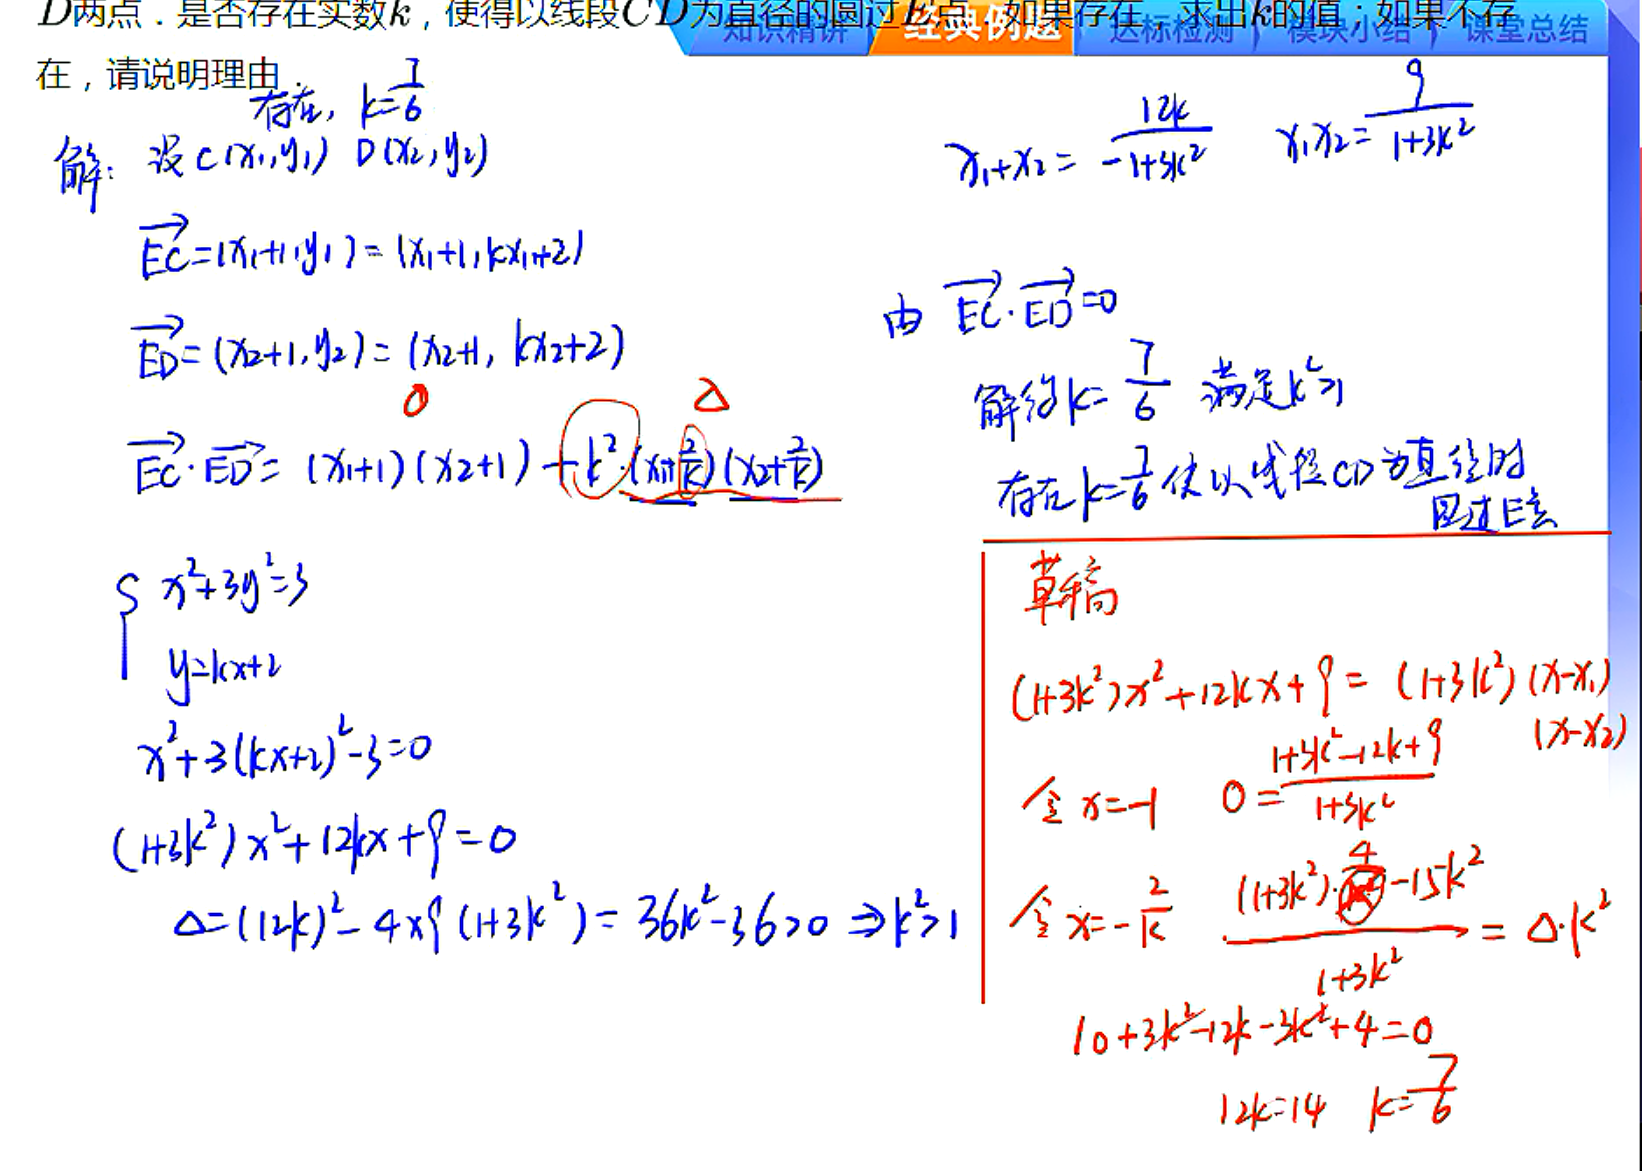 D两点．是否存在实数k，使得以线段CD为直径的圆过E点．如果存在，求出k的值；如果不存
知识精讲 经典例题 达标检测 模块小结 课堂总结
在，请说明理由．
存在, k=7/6
解: 设C(x₁,y₁) D(x₂,y₂)
EC=(x₁+1,y₁)=(x₁+1,kx₁+2)
ED=(x₂+1,y₂)=(x₂+1, kx₂+2)
O Δ
EC·ED=(x₁+1)(x₂+1)+k²·(x₁+2/k)(x₂+2/k)
{ x²+3y²=3
y=kx+2
x²+3(kx+2)²-3=0
(1+3k²)x²+12kx+9=0
Δ=(12k)²-4×9(1+3k²)=36k²-36>0 ⇒k²>1
x₁+x₂=-12k/1+3k² x₁x₂=9/1+3k²
由 EC·ED=0
解得k=7/6 满足k²>1
存在k=7/6使以线段CD为直径的
圆过E点
草稿
(1+3k²)x²+12kx+9=(1+3k²)(x-x₁)
(x-x₂)
令x=-1 O=1+3k²-12k+9/1+3k²
令x=-2/k (1+3k²)·4-15k²/1+3k²=Δ·k²
10+3k²-12k-3k²+4=0
12k=14 k=7/6